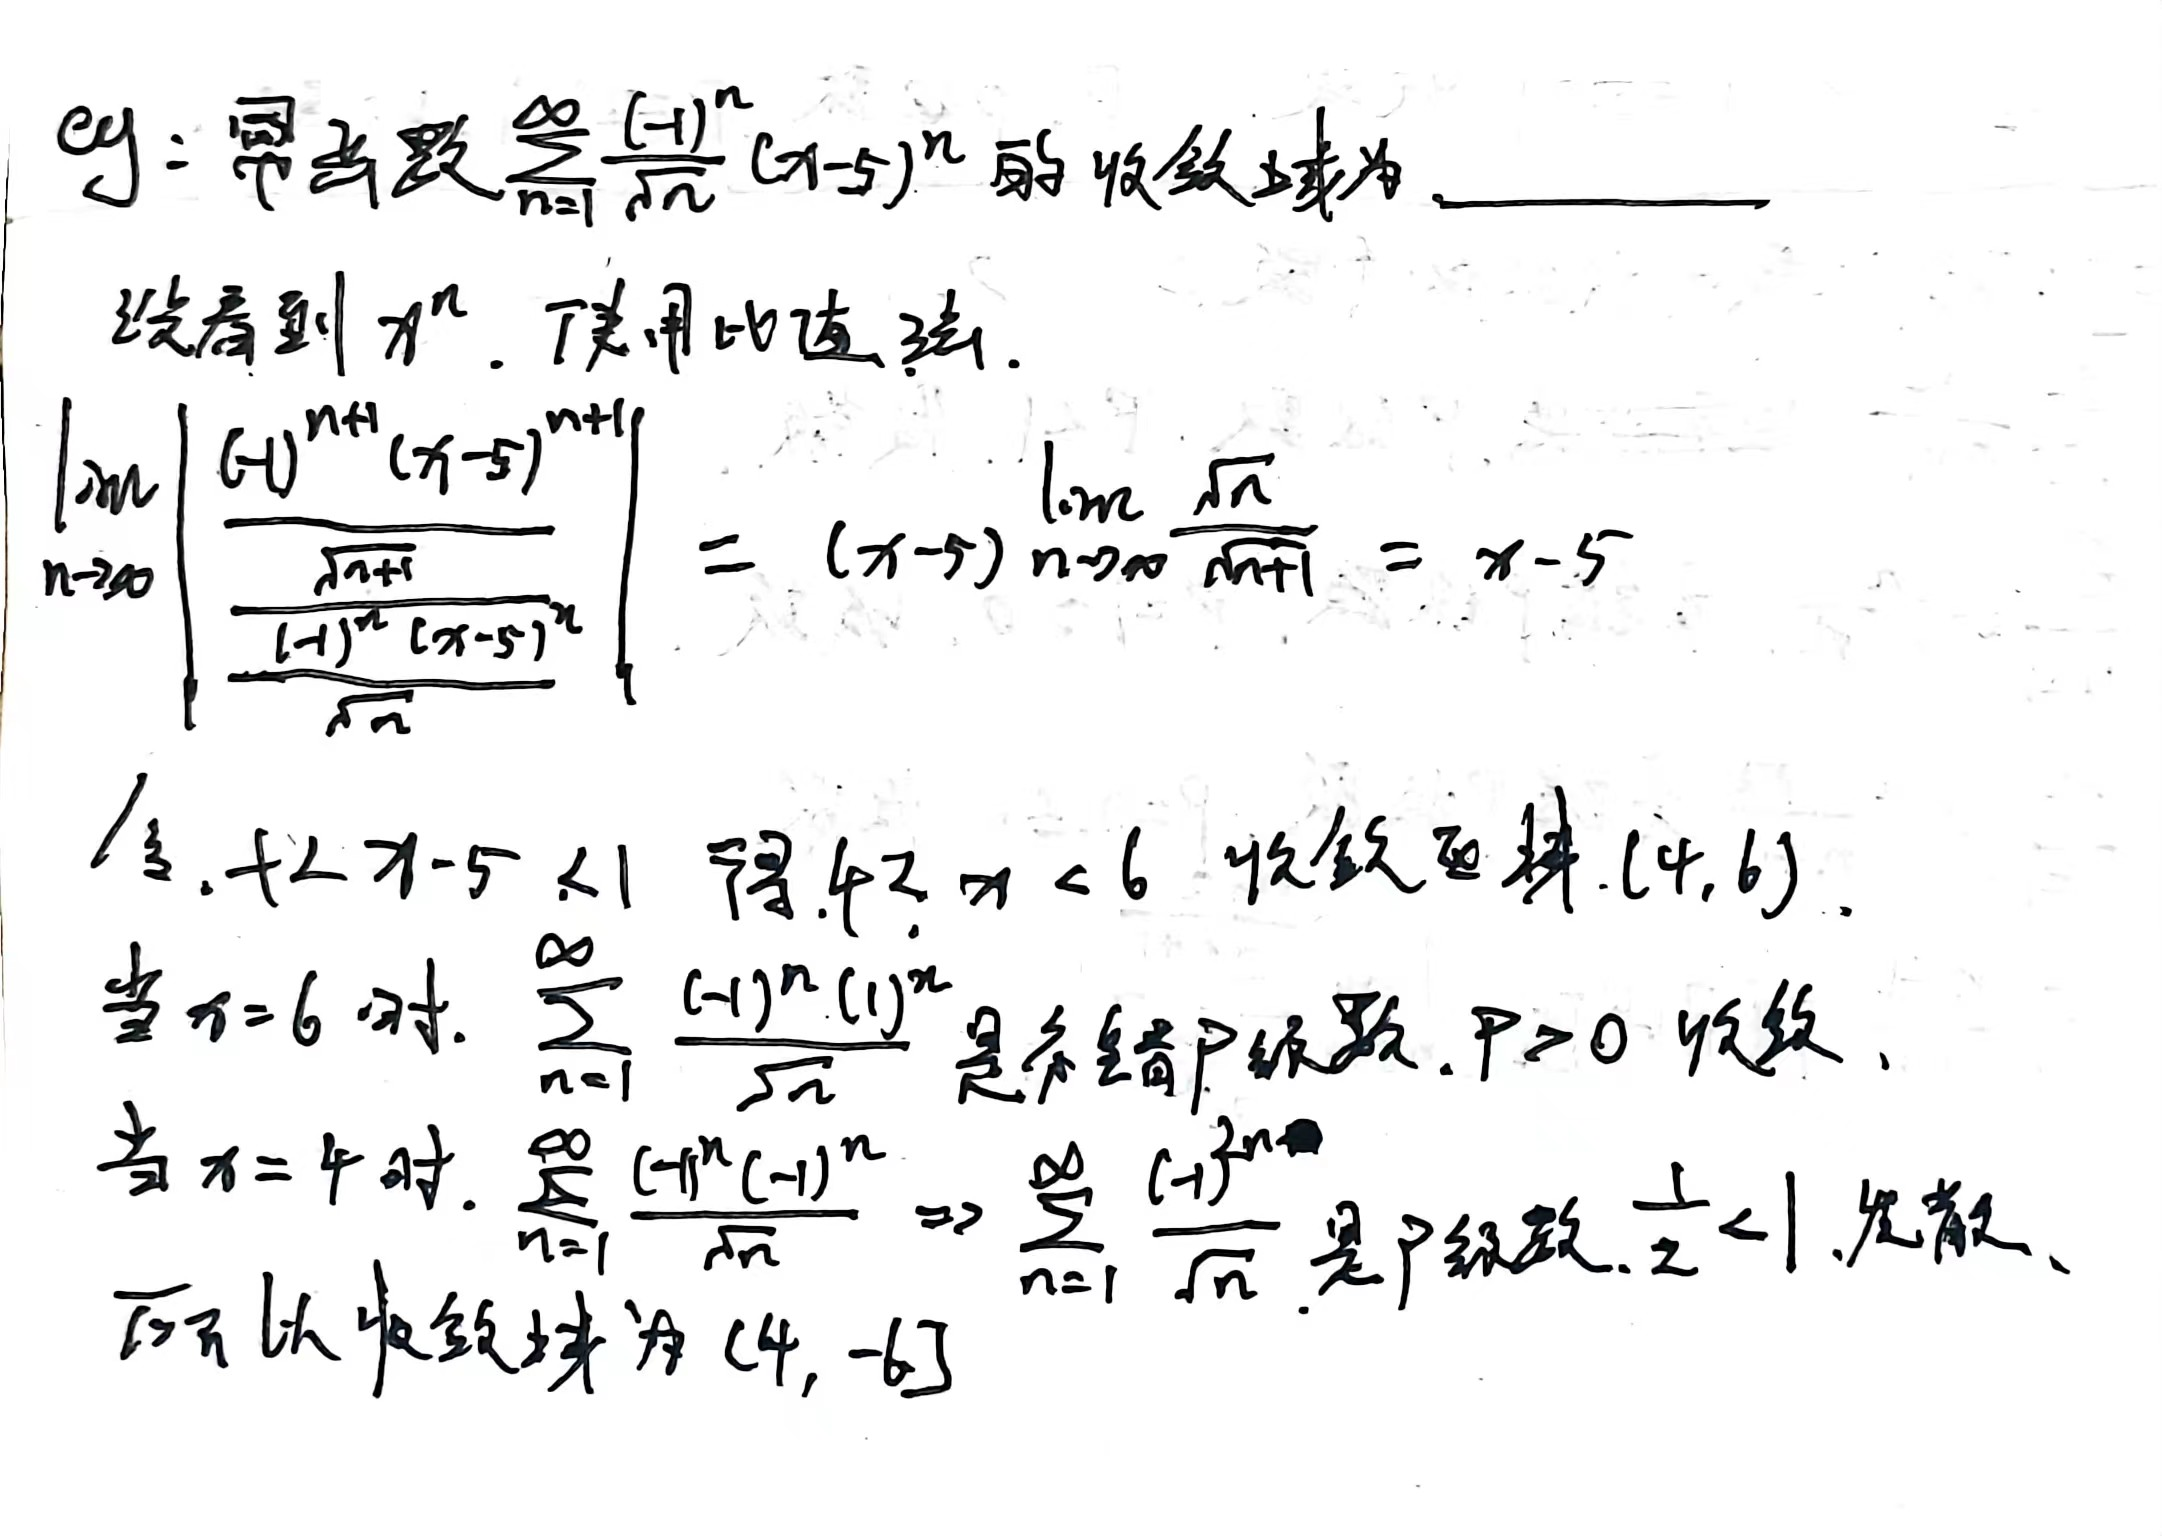 eg: 幂函数 $\sum_{n=1}^{\infty} \frac{(-1)^n}{\sqrt{n}} (x-5)^n$ 的收敛域为 ______
没看到 $x^n$. 使用比值法.
$\lim_{n\to\infty} \left| \frac{\frac{(-1)^{n+1}(x-5)^{n+1}}{\sqrt{n+1}}}{\frac{(-1)^n (x-5)^n}{\sqrt{n}}} \right| = (x-5) \lim_{n\to\infty} \frac{\sqrt{n}}{\sqrt{n+1}} = x-5$
令. $-1 < x-5 < 1$ 得. $4 < x < 6$ 收敛区域. $(4, 6)$.
当 $x=6$ 时. $\sum_{n=1}^{\infty} \frac{(-1)^n (1)^n}{\sqrt{n}}$ 是交错P级数. $P>0$ 收敛、
当 $x=4$ 时. $\sum_{n=1}^{\infty} \frac{(-1)^n (-1)^n}{\sqrt{n}} \Rightarrow \sum_{n=1}^{\infty} \frac{(-1)^{2n}}{\sqrt{n}}$. 是P级数. $\frac{1}{2} < 1$. 发散、
所以收敛域为 $(4, -6]$